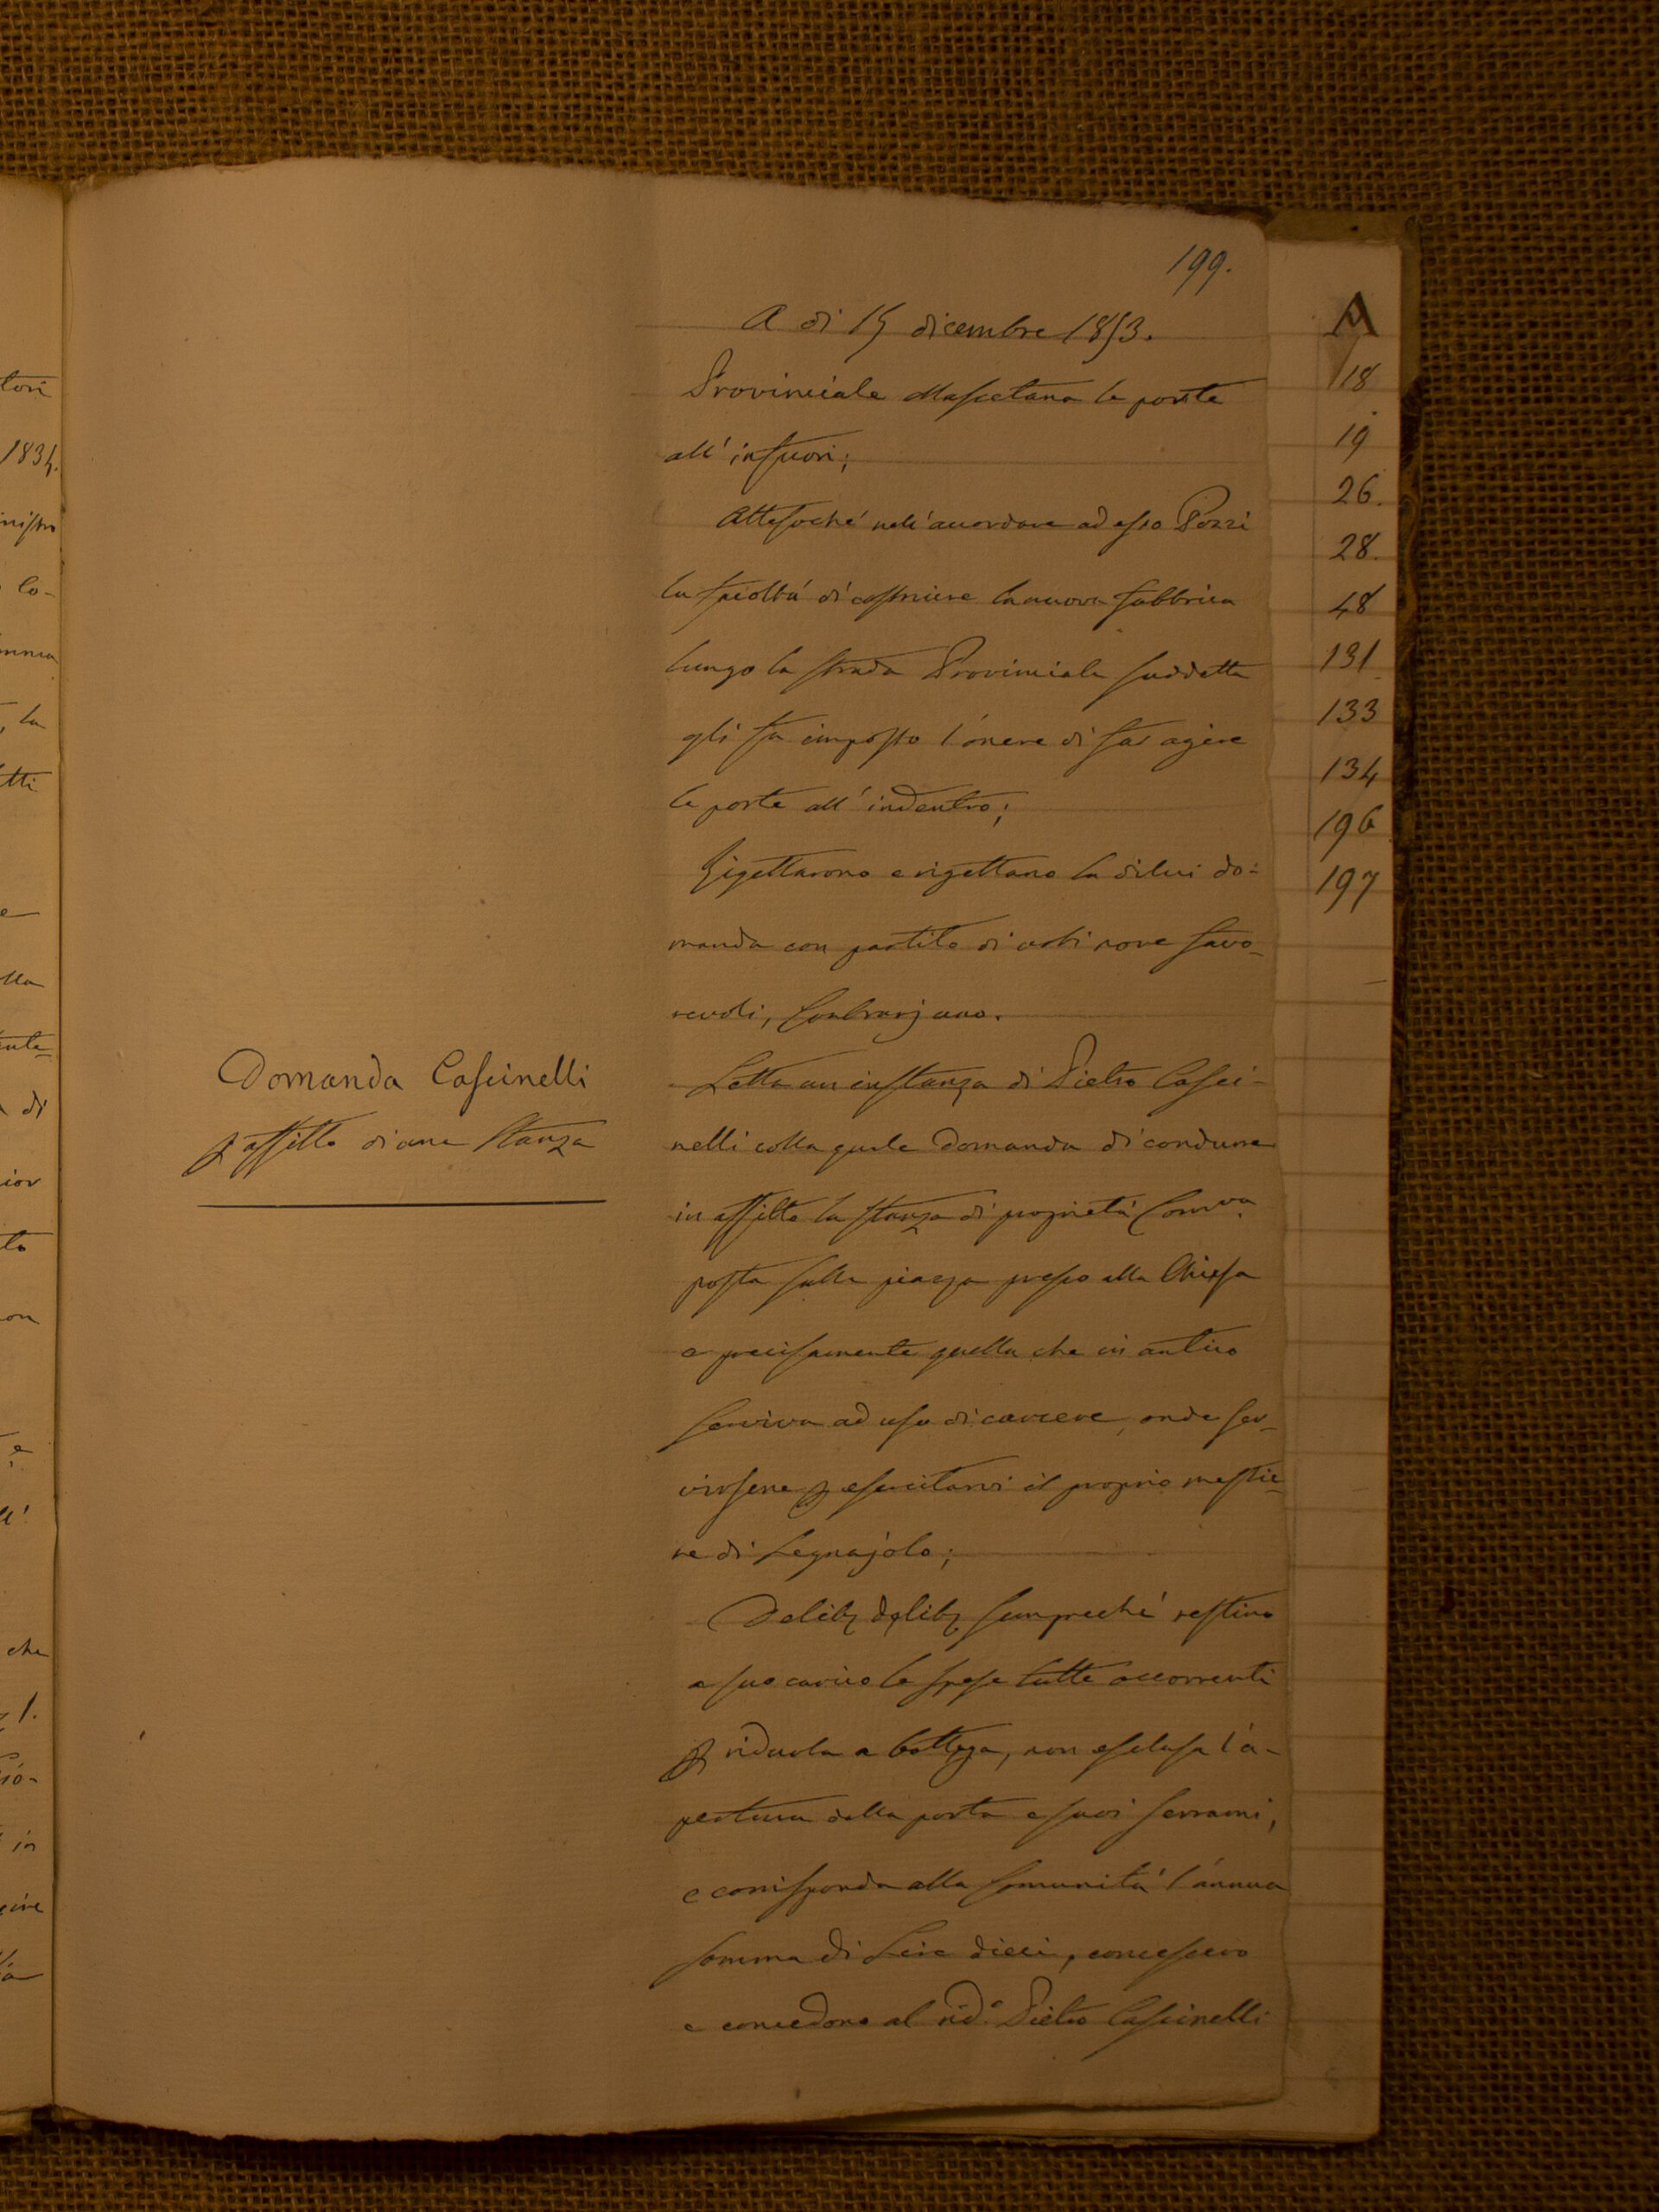 199.
A dì 15 dicembre 1853.
Provinciale Massetana le porte
all'infuori;
Attesoché nell'accordare ad esso Pozzi
la facoltà di costruire la nuova fabbrica
lungo la strada Provinciale suddetta
gli fu imposto l'onere di far agire
le porte all'indentro;
Rigettarono e rigettano la di lui do-
manda con partito di voti nove favo-
revoli, Contrarj uno.
Domanda Cascinelli
p affitto di una Stanza
Letta un instanza di Pietro Casci-
nelli colla quale domanda di condurre
in affitto la stanza di proprietà Com.va
posta sulla piazza presso alla Chiesa
e precisamente quella che in antico
serviva ad uso di carcere, onde ser-
virsene p esercitarvi il proprio mestie-
re di Legnajolo;
Delib delib sempreché restino
a suo carico le spese tutte occorrenti
p ridurla a bottega, non esclusa l'a-
pertura della porta e suoi serrami,
e corrisponda alla Comunità l'annua
somma di Lire dieci, concessero
e concedono al rid.o Pietro Cascinelli
A
18
19
26.
28.
48
131
133
134
196
197
tori
1834.
nistro
co-
, la
etti
e
lla
ente-
di
ior
to
on
e
ll'
che
1.
in